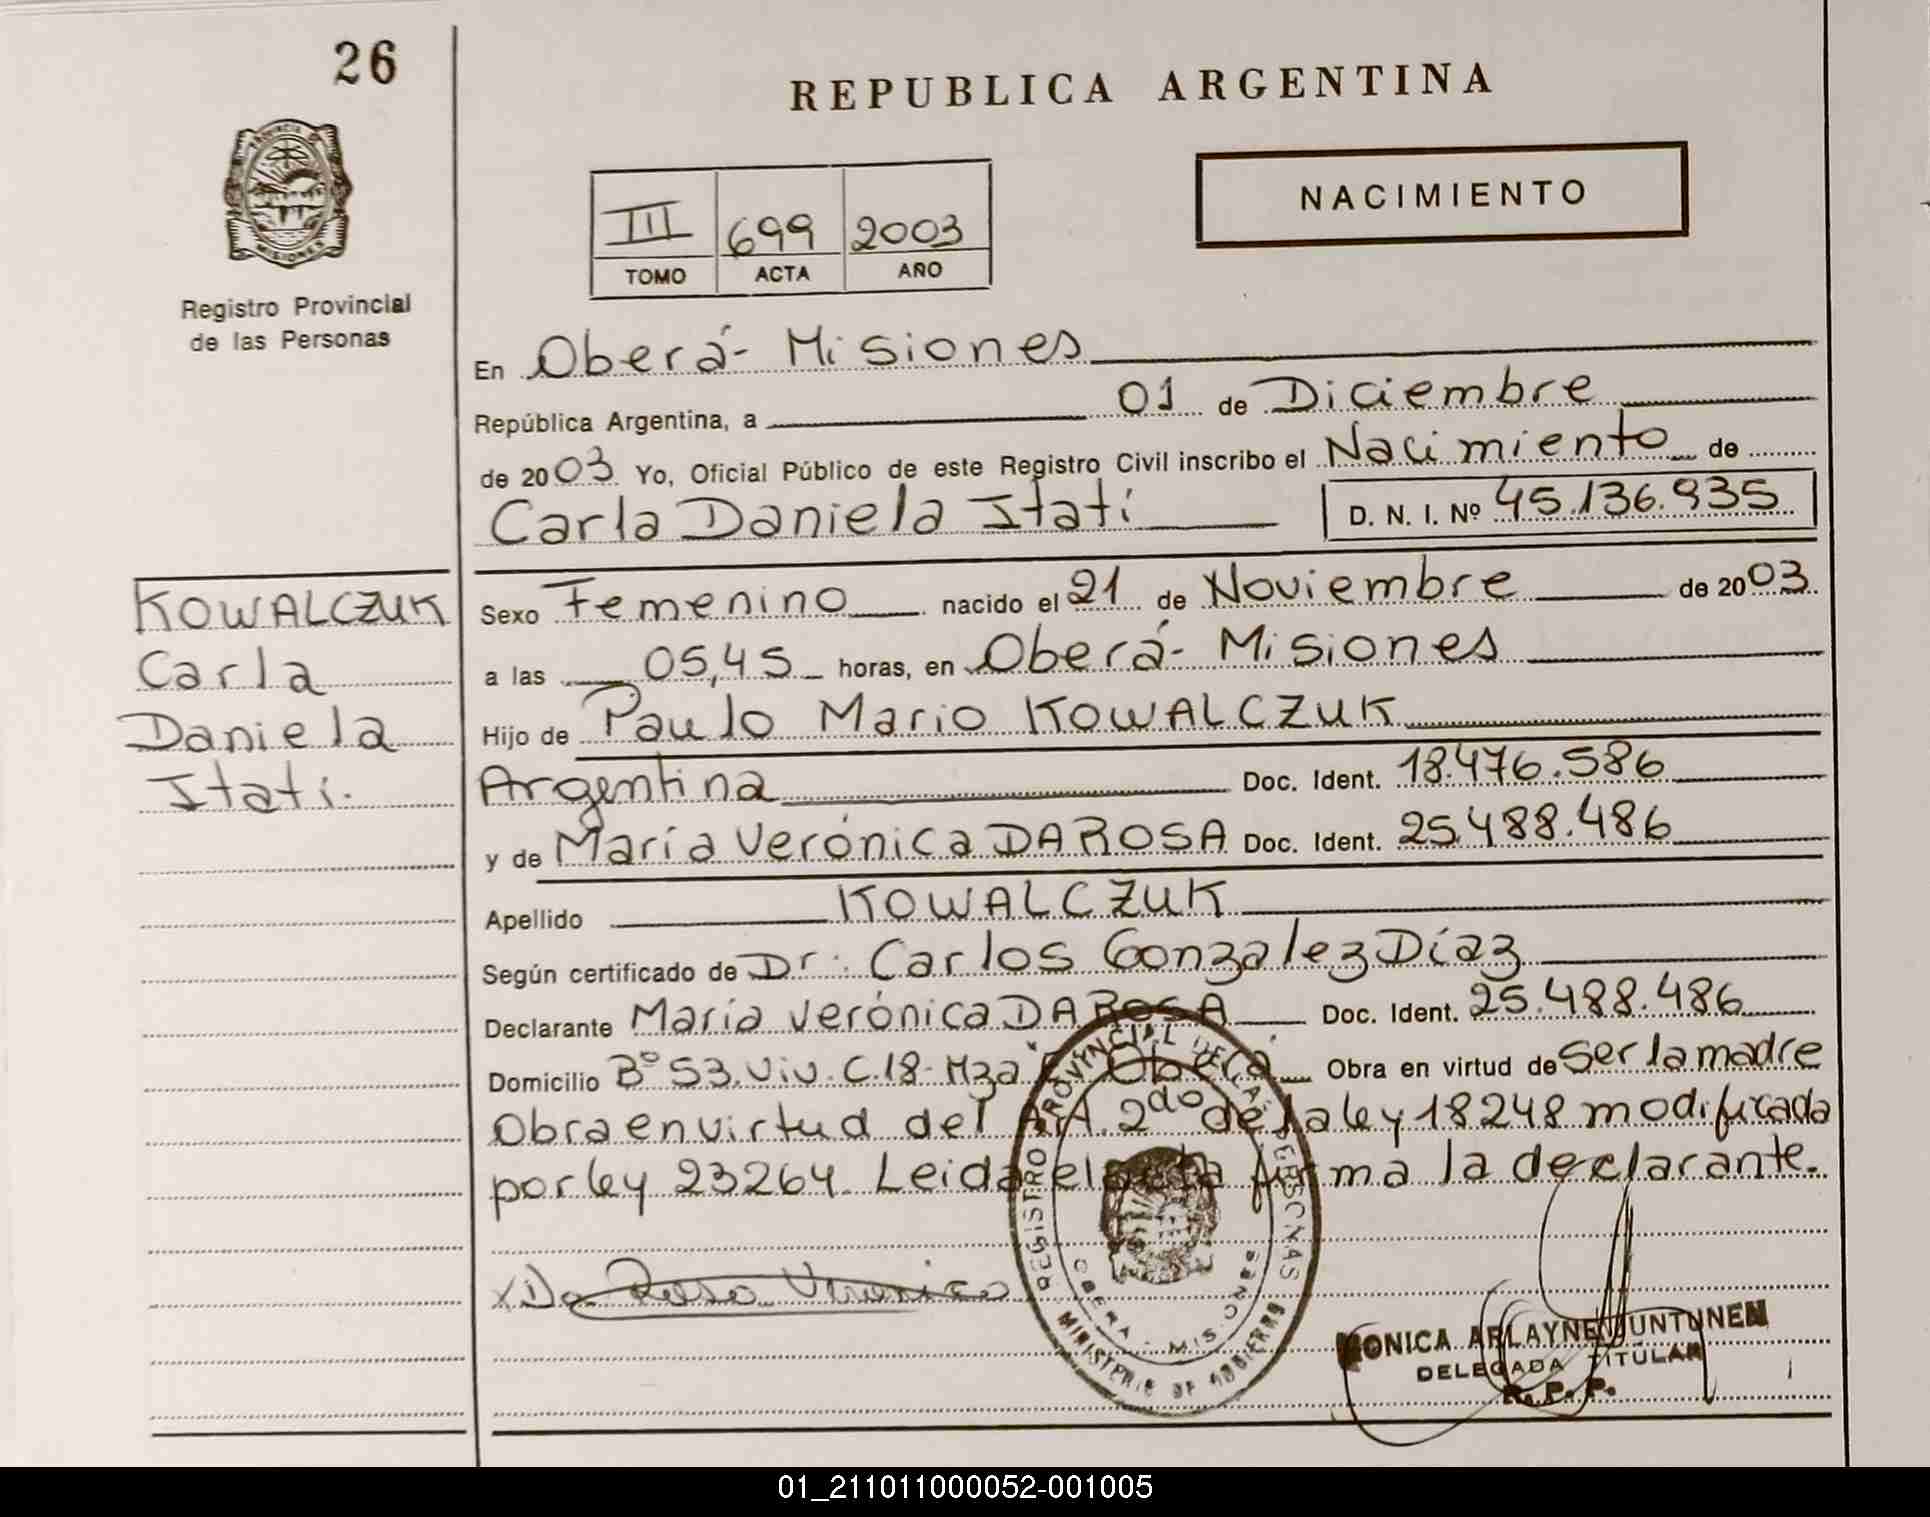 26
REPUBLICA ARGENTINA
PROVINCIA DE
MISIONES
NACIMIENTO
III 699 2003
TOMO ACTA AÑO
Registro Provincial
de las Personas
En Oberá - Misiones
República Argentina, a 01 de Diciembre
de 2003 Yo, Oficial Público de este Registro Civil inscribo el Nacimiento de
Carla Daniela Itatí D. N. I. Nº 45.136.935
KOWALCZUK
Carla
Daniela
Itatí.
Sexo Femenino nacido el 21 de Noviembre de 2003
a las 05,45 horas, en Oberá - Misiones
Hijo de Paulo Mario KOWALCZUK
Argentina Doc. Ident. 18.476.586
y de María Verónica DA ROSA Doc. Ident. 25.488.486
Apellido KOWALCZUK
Según certificado de Dr. Carlos Gonzalez Díaz
Declarante María Verónica DA ROSA Doc. Ident. 25.488.486
Domicilio Bº 53.Viv. C.18- Mza Oberá Obra en virtud de Ser la madre
Obra en virtud del Art. 2do de la ley 18248 modificada
por ley 23264. Leida el acta firma la declarante.
x Da Rosa Veronica
REGISTRO PROVINCIAL DE LAS PERSONAS
OBERA - MISIONES
MINISTERIO DE GOBIERNO
MONICA ARLAYNE JUNTUNEN
DELEGADA TITULAR
R. P. P.
01_211011000052-001005